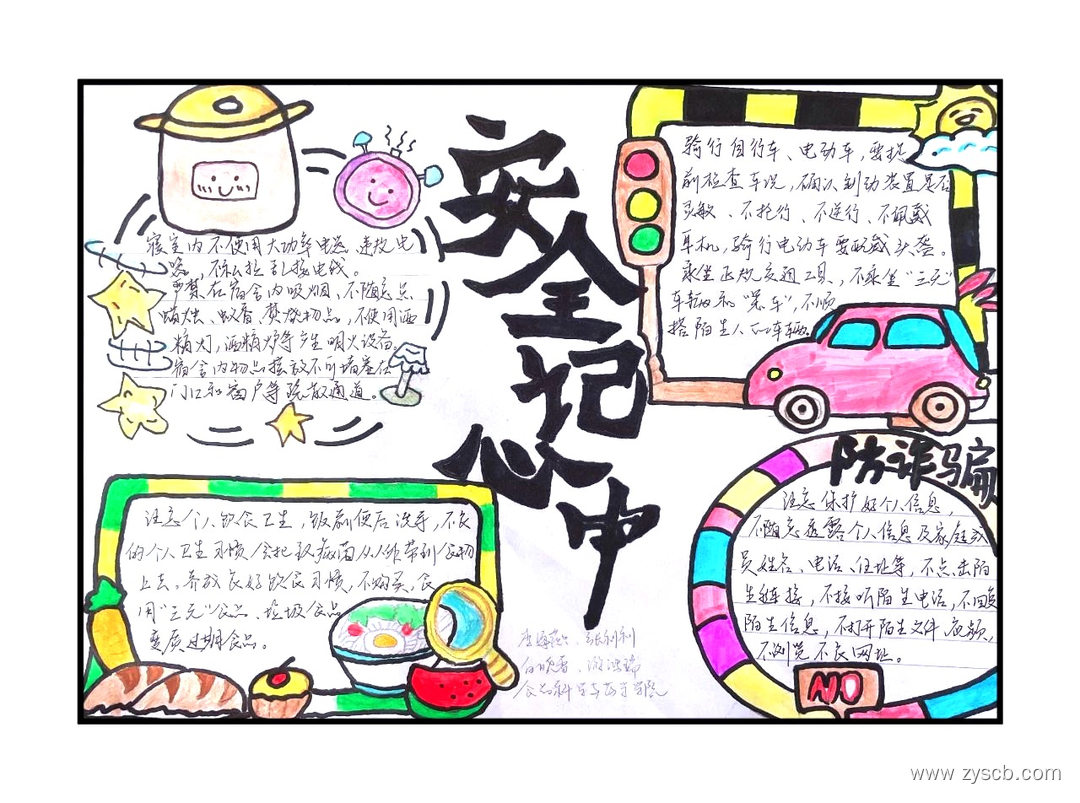 安全记心中
寝室内不使用大功率电器、违规电
器，不私拉乱接电线。
严禁在宿舍内吸烟，不随意点
蜡烛、蚊香、焚烧物品，不使用酒
精灯，酒精炉等产生明火设备。
宿舍内物品摆放不可堵塞住
门口和窗户等疏散通道。
骑行自行车、电动车，要提
前检查车况，确认刹动装置是否
灵敏、不抢行、不逆行、不佩戴
耳机，骑行电动车要配戴头盔。
乘坐正规交通工具，不乘坐“三无”
车辆和“黑车”，不随
搭陌生人的车辆。
注意个人饮食卫生，饭前便后洗手，不良
的个人卫生习惯会把致病菌从人体带到食物
上去，养成良好饮食习惯，不购买、食
用“三无”食品、垃圾食品
变质过期食品。
防诈骗
注意保护好个人信息，
不随意透露个人信息及家庭成
员姓名、电话、住址等，不点击陌
生链接，不接听陌生电话，不回复
陌生信息，不打开陌生文件、视频，
不浏览不良网址。
NO
www.zyscb.com